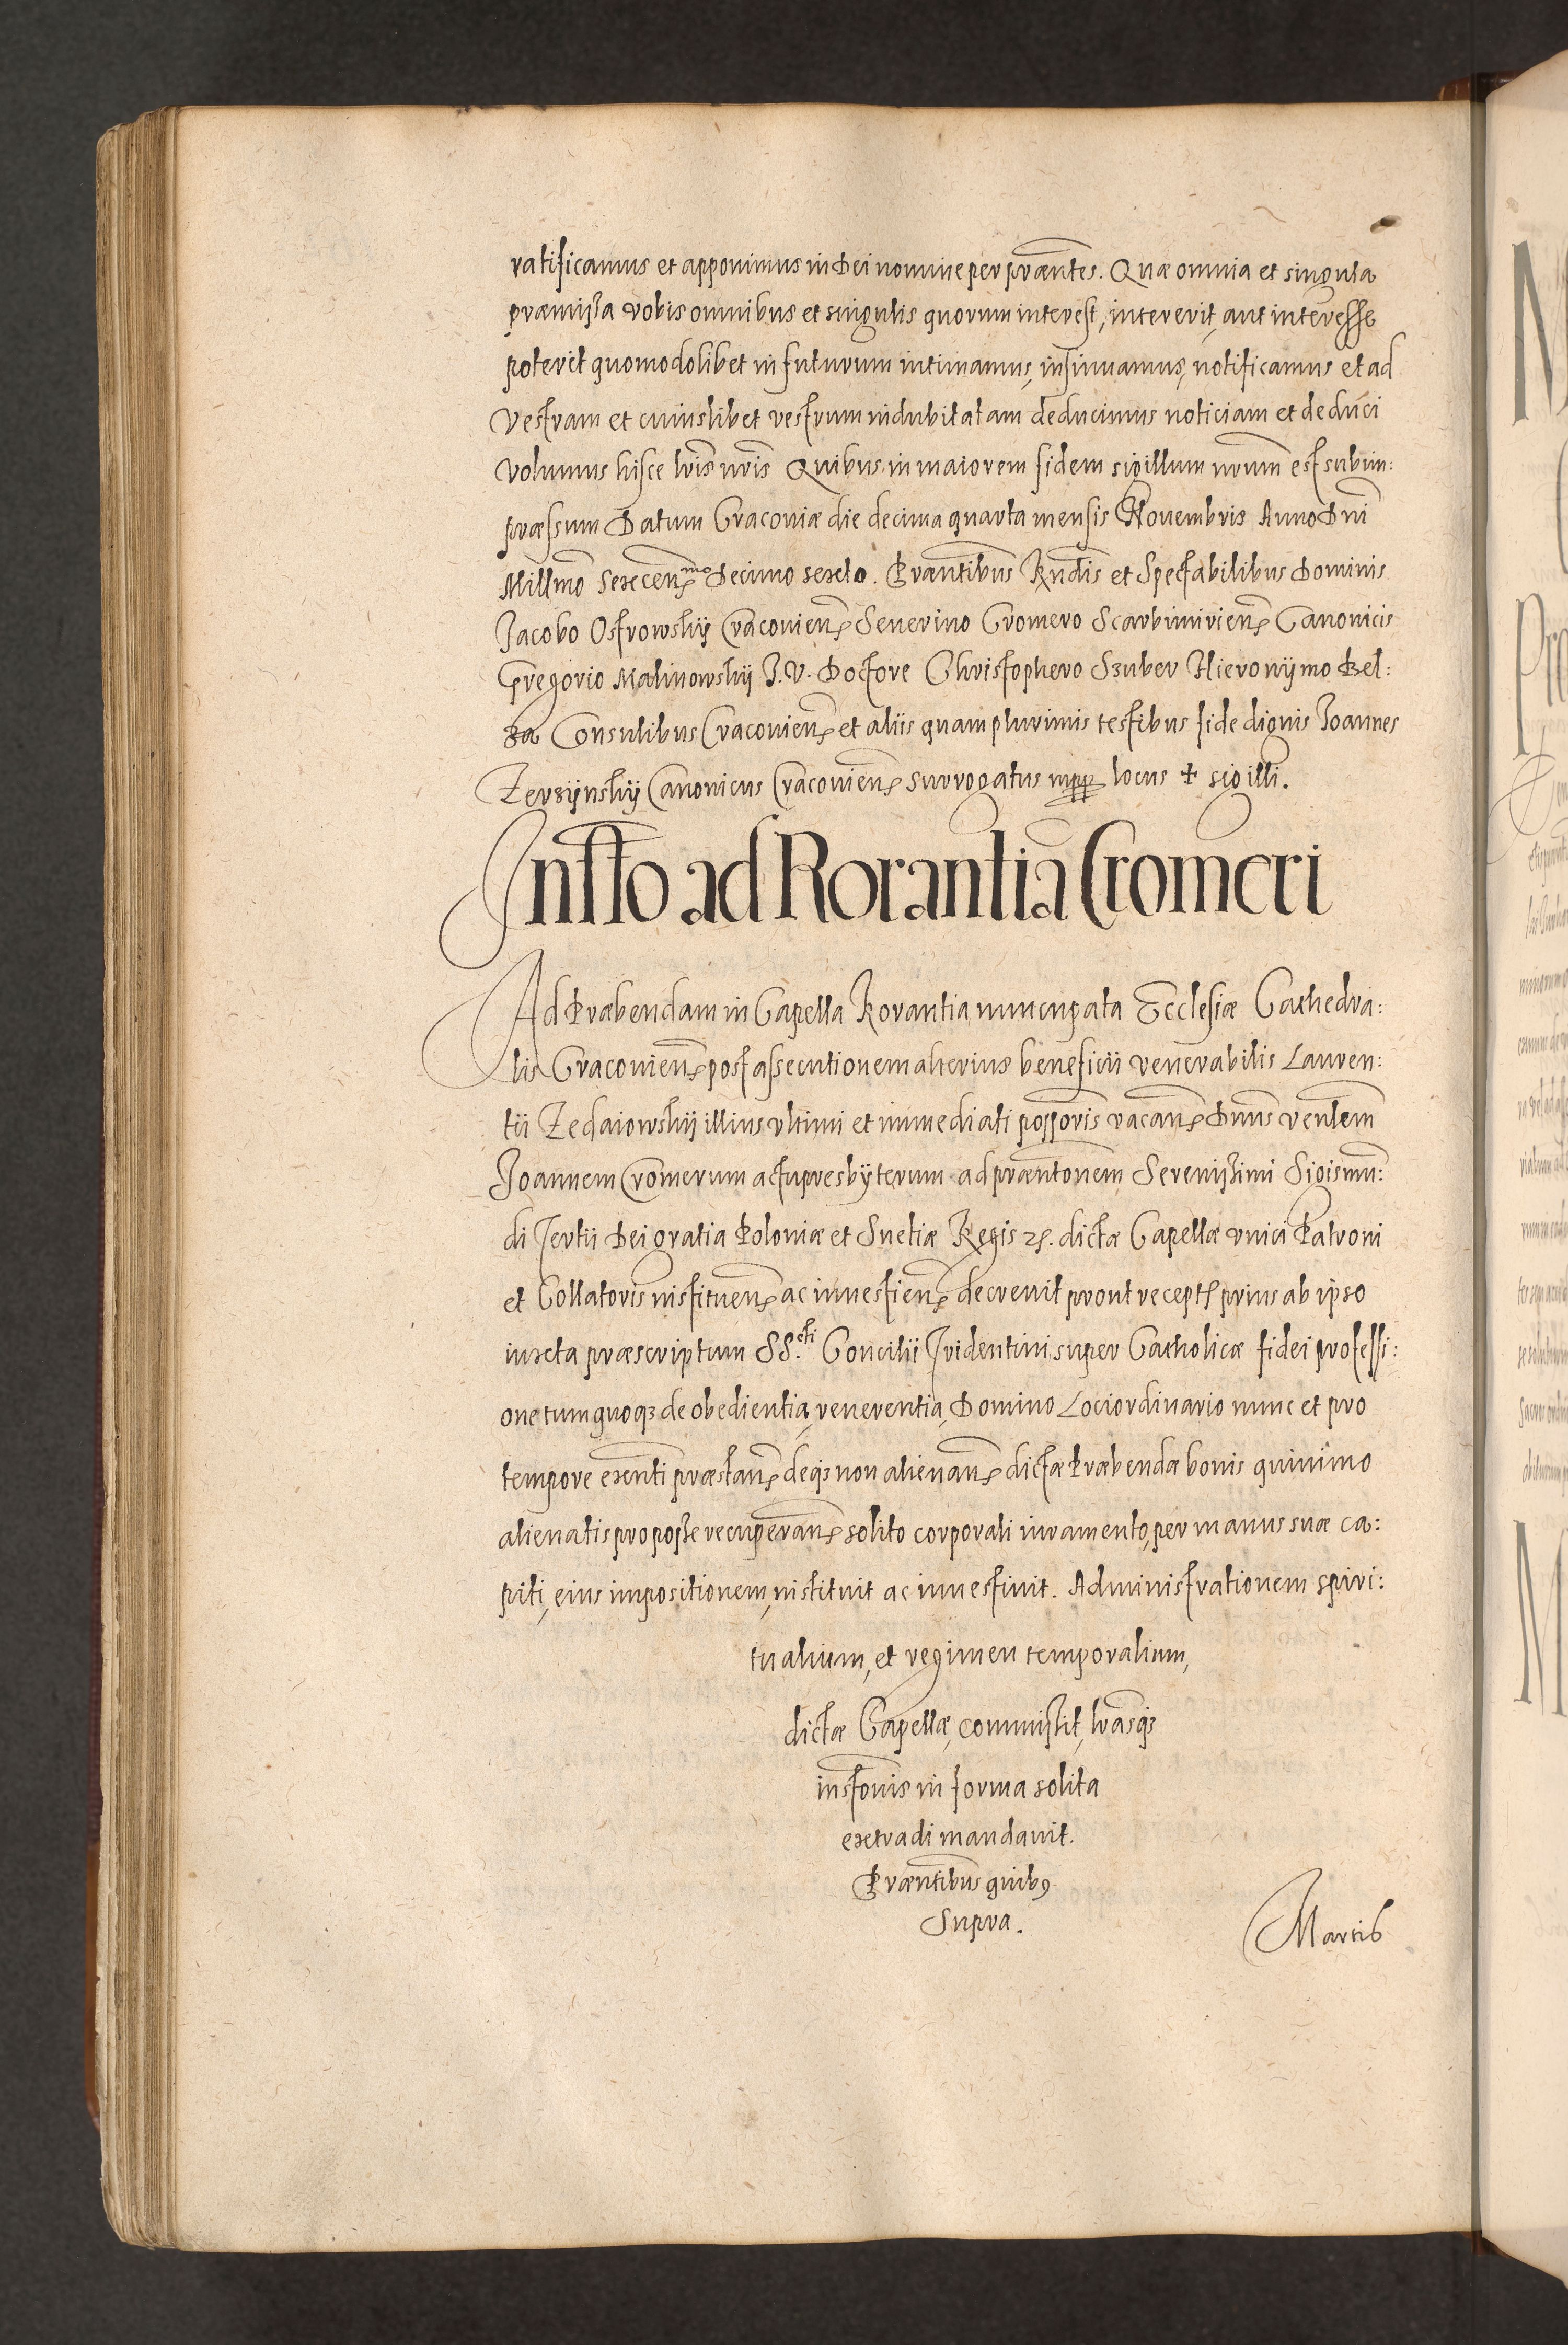 ratificamus et apponimus in Dei nomine per præntes. Quæ omnia et singula
præmissa vobis omnibus et singulis quorum interest, intererit, aut interesse
poterit quomodolibet in futurum intimamus, insinuamus, notificamus et ad
Vestram et cuiuslibet vestrum indubitatam deducimus noticiam et deduci
volumus hisce lris nris Quibus in maiorem fidem sigillum nrum est subim:
præssum Datum Cracoviæ die decima quarta mensis Novembris Anno Dni
Millmo Sexcen mo Decimo sexto. Præntibus Rndis et Spectabilibus Dominis
Jacobo Ostrowskÿ Cracovien Severino Cromero Scarbimirien Canonicis
Gregorio Malinowskÿ J. V. Doctore Christophero Szuber Hieronÿmo Bel:
za Consulibus Cracovien et aliis quam plurimis testibus fide dignis Joannes
Zerzÿnskÿ Canonicus Cracovien surrogatus mpp locus + sigilli.
Instto ad Rorantia Cromeri
Ad Præbendam in Capella Rorantia nuncupata Ecclesiæ Cathedra:
lis Cracovien post assecutionem alterius beneficii venerabilis Lauren:
tii Zedaiowskÿ illius ultimi et immediati possoris vacan Dnus venlem
Joannem Cromerum actu presbÿterum ad præntonem Serenissimi Sigismu:
di Tertii Dei gratia Poloniæ et Suetiæ Regis etc. dictæ Capellæ unici Patroni
et Collatoris instituen ac investien decrevit prout recept prius ab ipso
iuxta præscriptum SS.cti Concilii Tridentini super Catholicæ fidei professi:
one tum quoqz de obedientia, reverentia, Domino Loci ordinario nunc et pro
tempore exnti præstan deqz non alienan dictæ Præbendæ bonis quinimo
alienatis pro posse recuperan solito corporali iuramento, per manus suæ ca:
piti, eius impositionem, instituit ac investivit. Administrationem spiri:
tualium, et regimen temporalium,
dictæ Capellæ, commissit, lrasqz
instonis in forma solita
extradi mandavit.
Præntibus quibus
Supra.
Martis